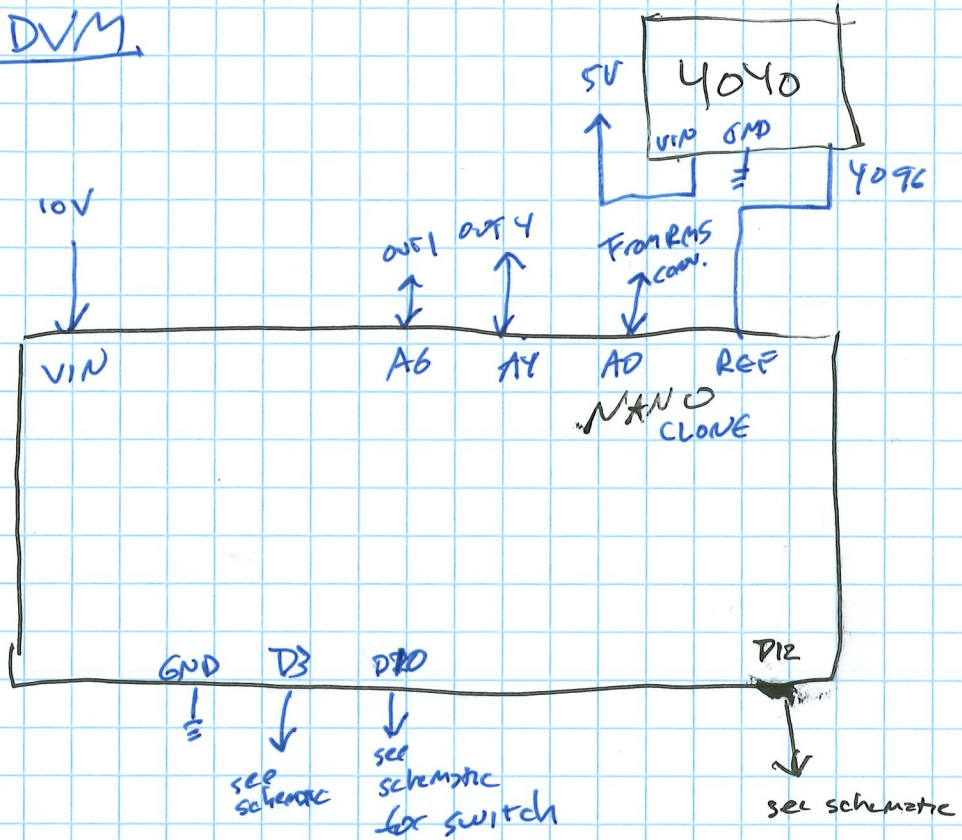 DVM
4040
5V
VIN GND
4096
10V
OUT1
OUT 4
From RMS
conv.
VIN
A6
A4
A0
REF
NANO
CLONE
GND
D3
D10
D12
see
schematic
see
schematic
for switch
see schematic